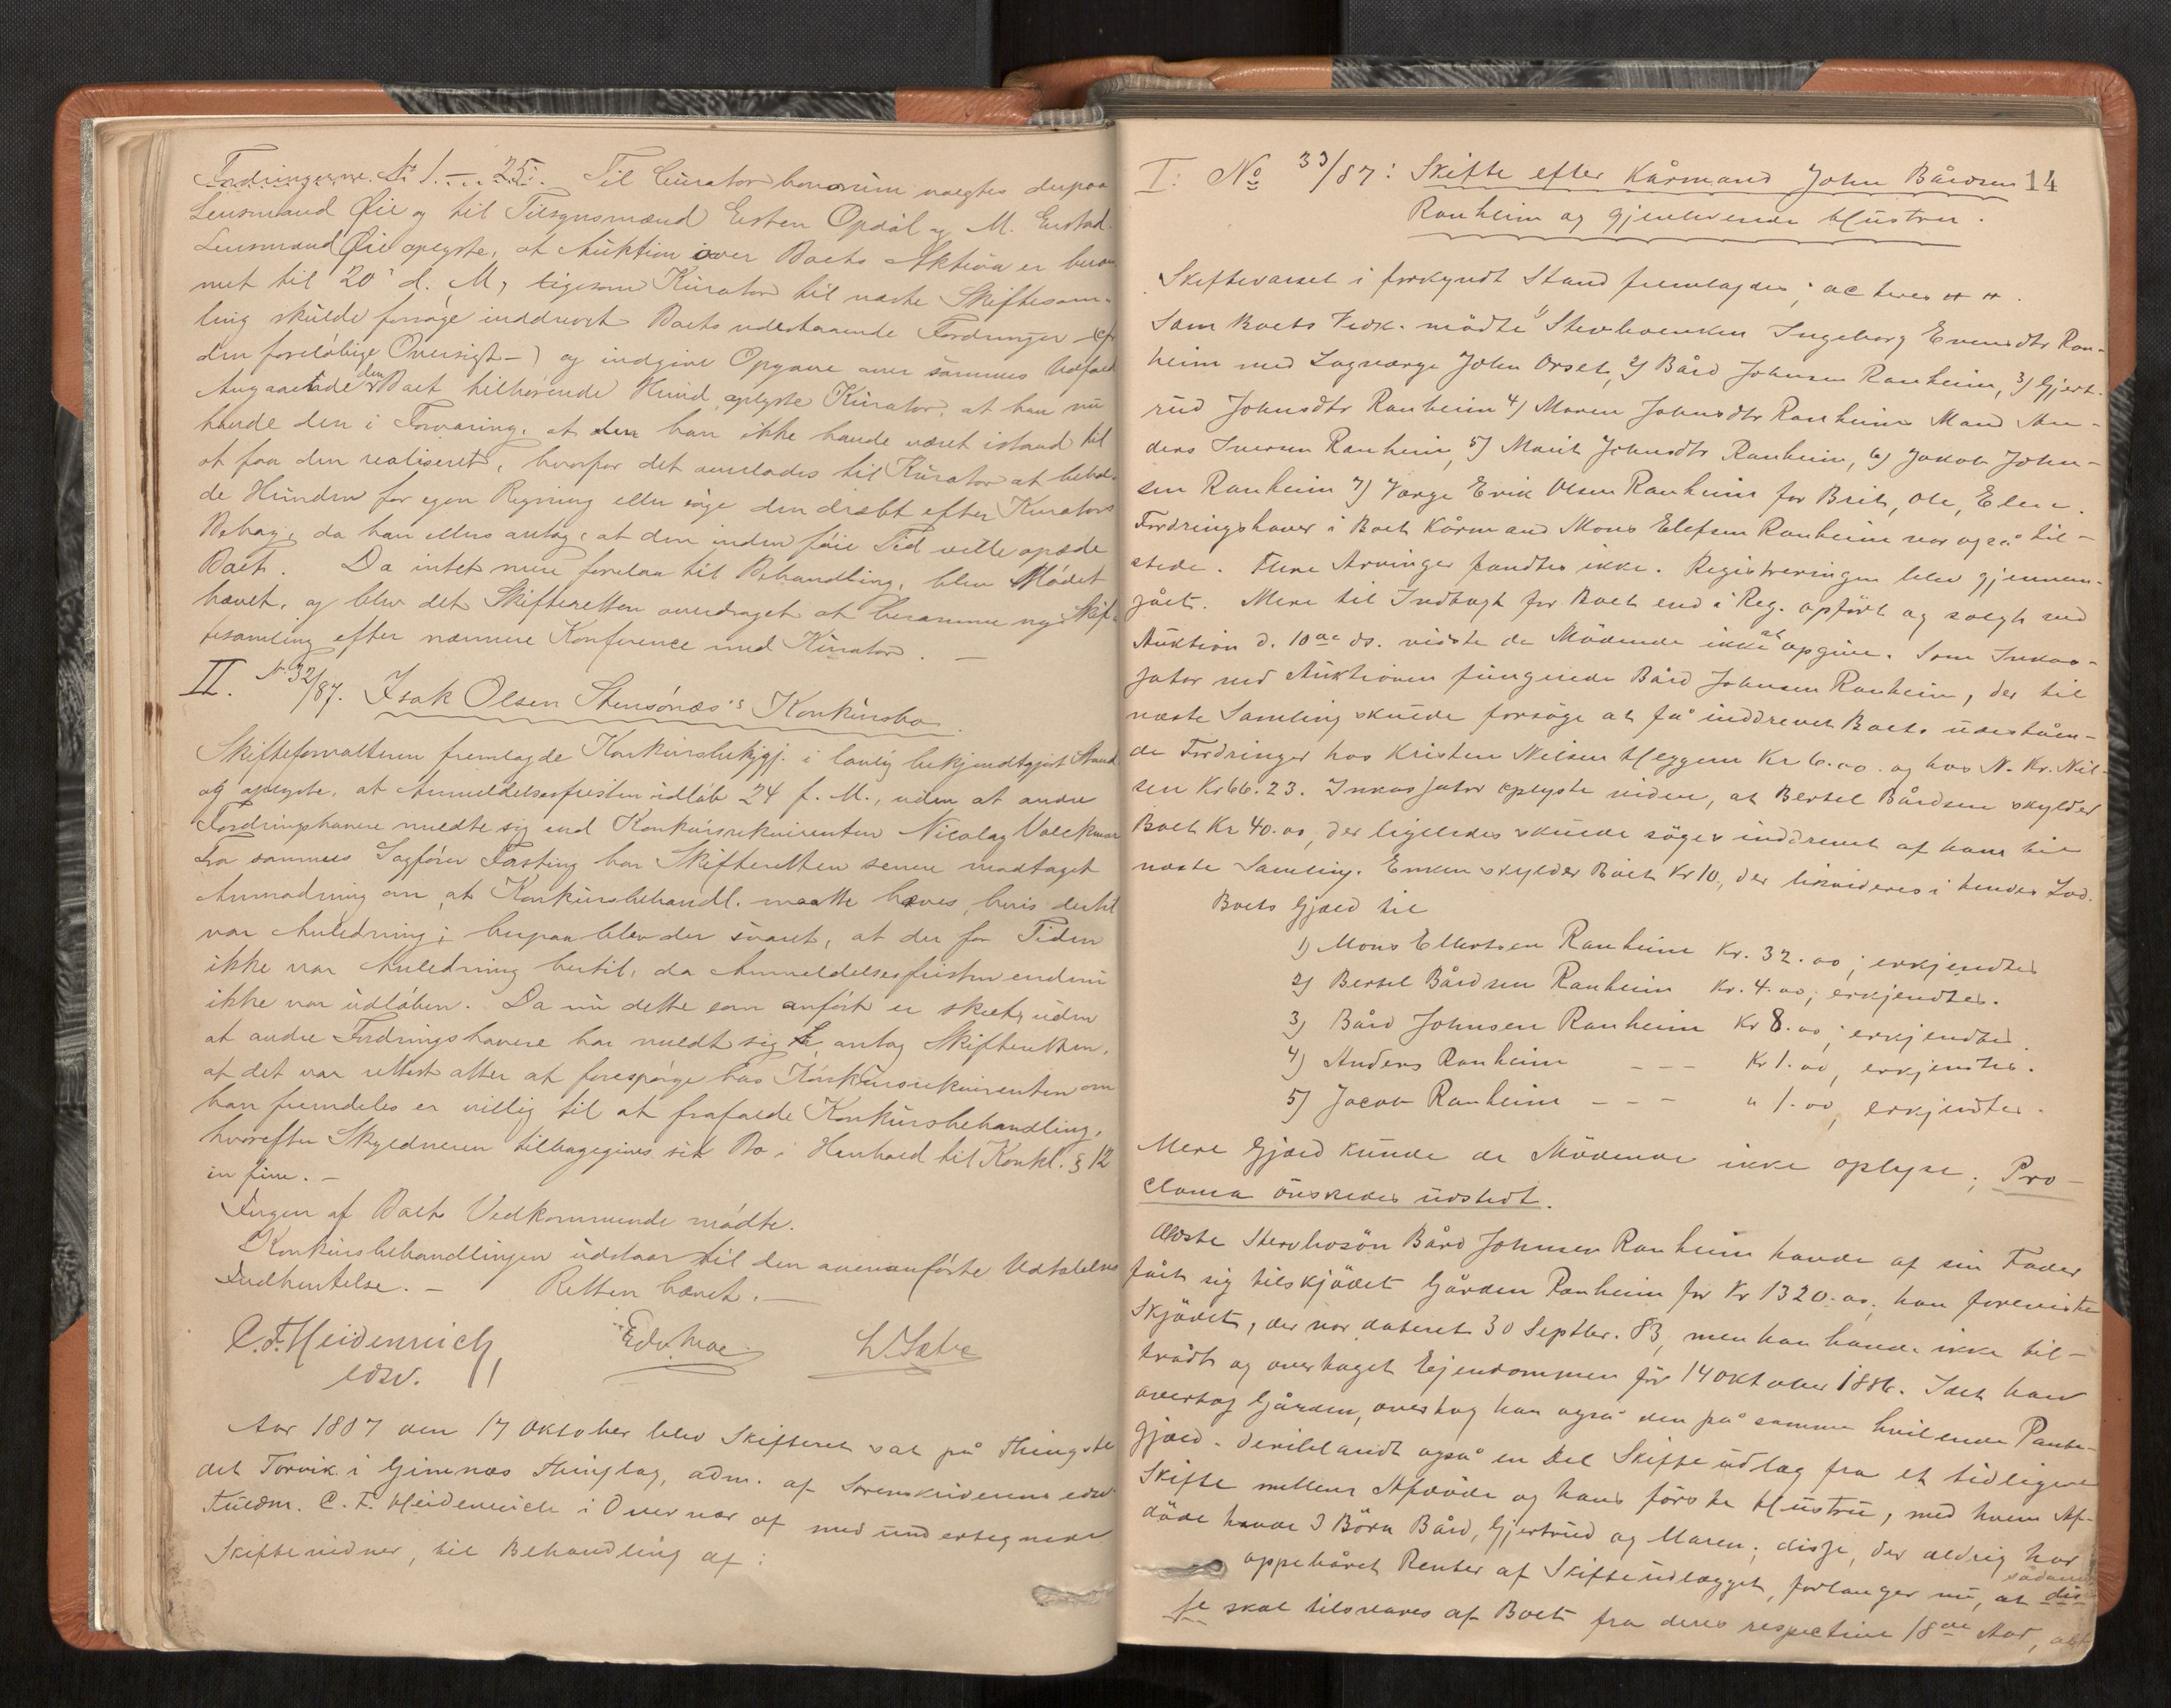 Fordringerne No 1 – 25. Til Curator bonorum valgtes derpaa
Lensmand Øie og til Tilsynsmænd Esten Opdal og M. Enstad.
Lensmand Øie oplyste, at Auktion over Boets Aktiva er beram-
met til 20de d. M., ligesom Kurator til næste Skiftesam-
ling skulde forsøge inddrevet Boets udestaaende Fordringer – (cfr
den foreløbige Oversigt –) og indgive Opgave over sammes Udfald
Angaaende den Boet tilhørende Hund, oplyste Kurator, at han nu
havde den i Forvaring, at han ikke havde været istand til
at faa den realiseret, hvorfor det overlades til Kurator at behol-
de Hunden for egen Regning eller søge den dræbt efter Kurators
Behag, da han ellers antog, at den inden føie Tid vilde opæde
Boet. Da intet mere forelaa til Behandling, blev Mødet
hævet, og blev det Skifteretten overdraget at beramme ny Skif-
tesamling efter nærmere Konference med Kurator. –
II. No 32/87. Isak Olsen Stensønæs's Konkursbo.
Skifteforvalteren fremlagde Konkursbekjgj. i lovlig bekjendtgjort Stand
og oplyste, at Anmeldelsesfristen udløb 24 f. M., uden at andre
Fordringshavere meldte sig end Konkursrekvirenten Nicolay Volckmar
Fra sammes Sagfører Fasting har Skifteretten senere modtaget
Anmodning om, at Konkursbehandl. maatte hæves, hvis dertil
var Anledning; herpaa blev der svaret, at der for Tiden
ikke var Anledning hertil, da Anmeldelsesfristen endnu
ikke var udløben. Da nu dette som anført er skeet, uden
at andre Fordringshavere har meldt sig, antog Skifteretten,
at det var rettest atter at forespørge hos Konkursrekvirenten om
han fremdeles er villig til at frafalde Konkursbehandling,
hvorefter Skyldneren tilbagegives sit Bo i Henhold til Konkl. § 12
in fine. –
Ingen af Boets Vedkommende mødte.
Konkursbehandlingen udstaar til den ovenanførte Udtalelses
Indhentelse. – Retten hævet. –
C. F. Heidenreich Edv. Moe L. Sætre
edsv.
Aar 1887 den 17 Oktober blev Skifteret sat på Thingste
det Torvik i Gimnæs Thinglag, adm. af Sorenskriverens edsv.
Fuldm. C. F. Heidenreich i Overvær af medundertegnede
Skiftevidner, til Behandling af:
14
I: No 33/87: Skifte efter Kårmand John Bårdsen
Ranheim og gjenlevende Hustru.
Skiftevarsel i forkyndt Stand fremlagdes; acteres
Som Boets Vedk. mødte 1) Stervboenken Ingeborg Evensdtr Ran-
heim med Lagværge John Orset, 2) Bård Johnsen Ranheim, 3) Gjert-
rud Johnsdtr Ranheim 4) Maren Johnsdtr Ranheims Mand An-
ders Iversen Ranheim, 5) Marit Johnsdtr Ranheim, 6) Jakob John-
sen Ranheim 7) Værge Erik Olsen Ranheim for Brit, Ole, Elen.
Fordringshaver i Boet Kårmand Mons Elefsen Ranheim var også til-
stede. Flere Arvinger fandtes ikke. Registreringen blev gjennem-
gået. Mere til Indtægt for Boet end i Reg. opført og solgt ved
Auktion d. 10de ds. vidste de Mødende ikke at opgive. Som Inkas-
sator ved Auktionen fungerede Bård Johnsen Ranheim, der til
næste Samling skulde forsøge at få inddrevet Boets udeståen-
de Fordringer hos Kristen Nilsen Heggem Kr 6.00. og hos N. Kr. Nil-
sen Kr 66.23. Inkassator oplyste videre, at Bertel Bårdsen skylder
Boet Kr 40.00, der ligeledes skulde søges inddrevet af ham til
næste Samling. Enken skylder Boet Kr 10, der likvideres i hendes Lod.
Boets Gjæld til
1) Mons Ellertsen Ranheim Kr. 32.00; erkjendtes
2) Bertel Bårdsen Ranheim Kr. 4.00; erkjendtes.
3) Bård Johnsen Ranheim Kr 8.00; erkjendtes
4) Anders Ranheim – – – Kr 1.00, erkjendtes.
5) Jacob Ranheim – – – " 1.00, erkjendtes.
Mere Gjæld kunde de Mødende ikke oplyse; Pro-
clama ønskedes udstedt.
Ældste Stervbosøn Bård Johnsen Ranheim havde af sin Fader
fået sig tilskjødet Gården Ranheim for Kr 1320.00; han foreviste
Skjødet, der var dateret 30 Septbr. 83, men han havde ikke til-
trådt og overtaget Ejendommen før 14 Oktober 1886. Idet han
overtog Gården, overtog han også den på samme hvilende Pante-
gjæld – deriblandt også en Del Skifteudlæg fra et tidligere
Skifte mellem Afdøde og hans første Hustru, med hvem Af-
døde havde 3 Børn Bård, Gjertrud og Maren; disse, der aldrig har
oppebåret Renter af Skifteudlægget, forlanger nu, at sådanne dis-
se skal tilsvares af Boet fra deres respective 18de Aar, alt